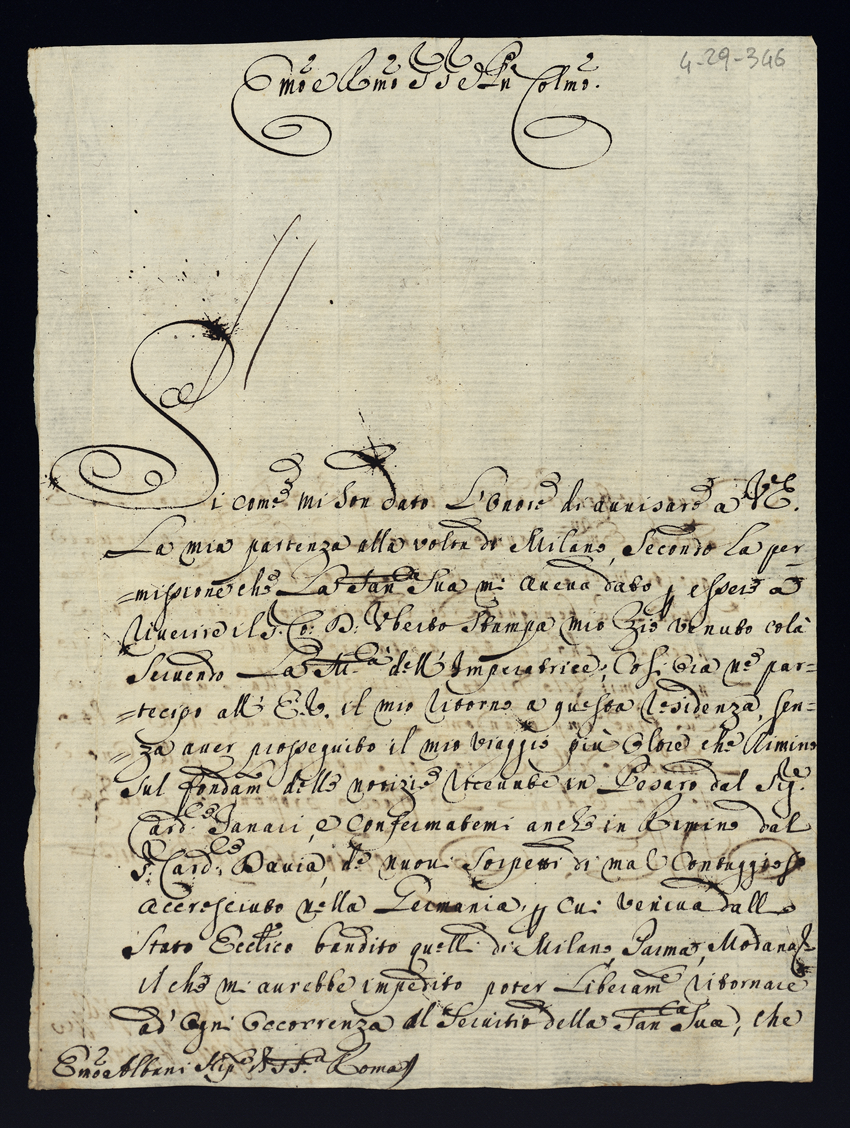 4-29-346
Emo e Rmo Sig Sig e Pn Colmo.
Si come mi son dato L'onore di auuisare a VE.
La mia partenza alla uolta di Milano, Secondo La per=
=missione che La San:ta Sua mi aueua dato p essere à
riuerire il S. Co: D. Vberto Stampa mio Zio uenuto colà
Seruendo La M.tà dell'Imperatrice; Cosi Già ne par=
=tecipo all'E.V. il mio ritorno a questa residenza, sen=
=za auer proseguito il mio uiaggio più oltre che Rimino
Sul fondam delle notizie riceuute in Pesaro dal Sig.re
Card:le Tanari, e Confermatemi anche in Rimino dal
S. Card:le Dauia, de nuoui Sospetti di mal Contaggioso
accresciuto nella Germania, p cui ueniua dallo
Stato Ecctico bandito quelli di Milano Parma, Modana
il che mi aurebbe impedito poter Liberam.e ritornare
ad' ogni occorrenza al Seruitio della San:ta Sua, che
Emo Albani Roma